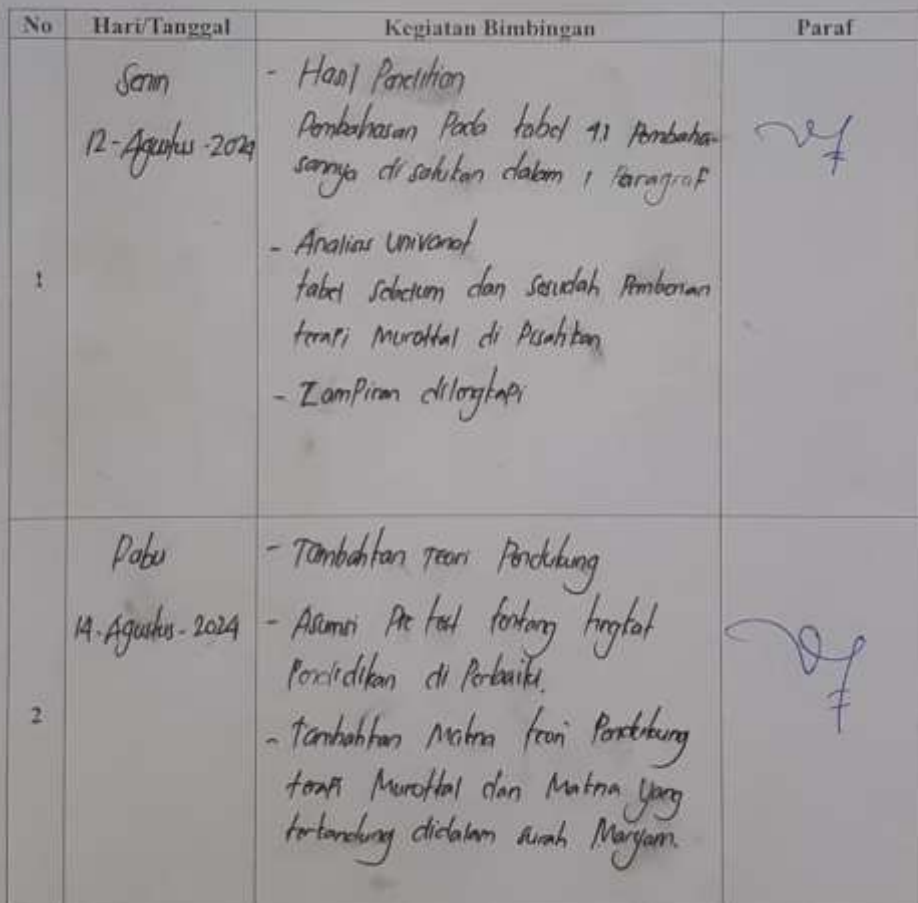 No Hari/Tanggal Kegiatan Bimbingan Paraf
1
Senin
12-Agustus-2024
- Hasil Penelitian
Pembahasan Pada tabel 4.1 Pembaha-
sannya di satukan dalam 1 Paragraf
- Analisis Univariat
tabel Sebelum dan Sesudah Pemberian
terapi Murottal di Pisahkan
- Lampiran dilengkapi
2
Rabu
14-Agustus-2024
- Tambahkan Teori Pendukung
- Asumsi Pre test tentang tingkat
Pendidikan di Perbaiki.
- Tambahkan Makna teori Pendukung
terapi Murottal dan Makna Yang
terkandung didalam surah Maryam.